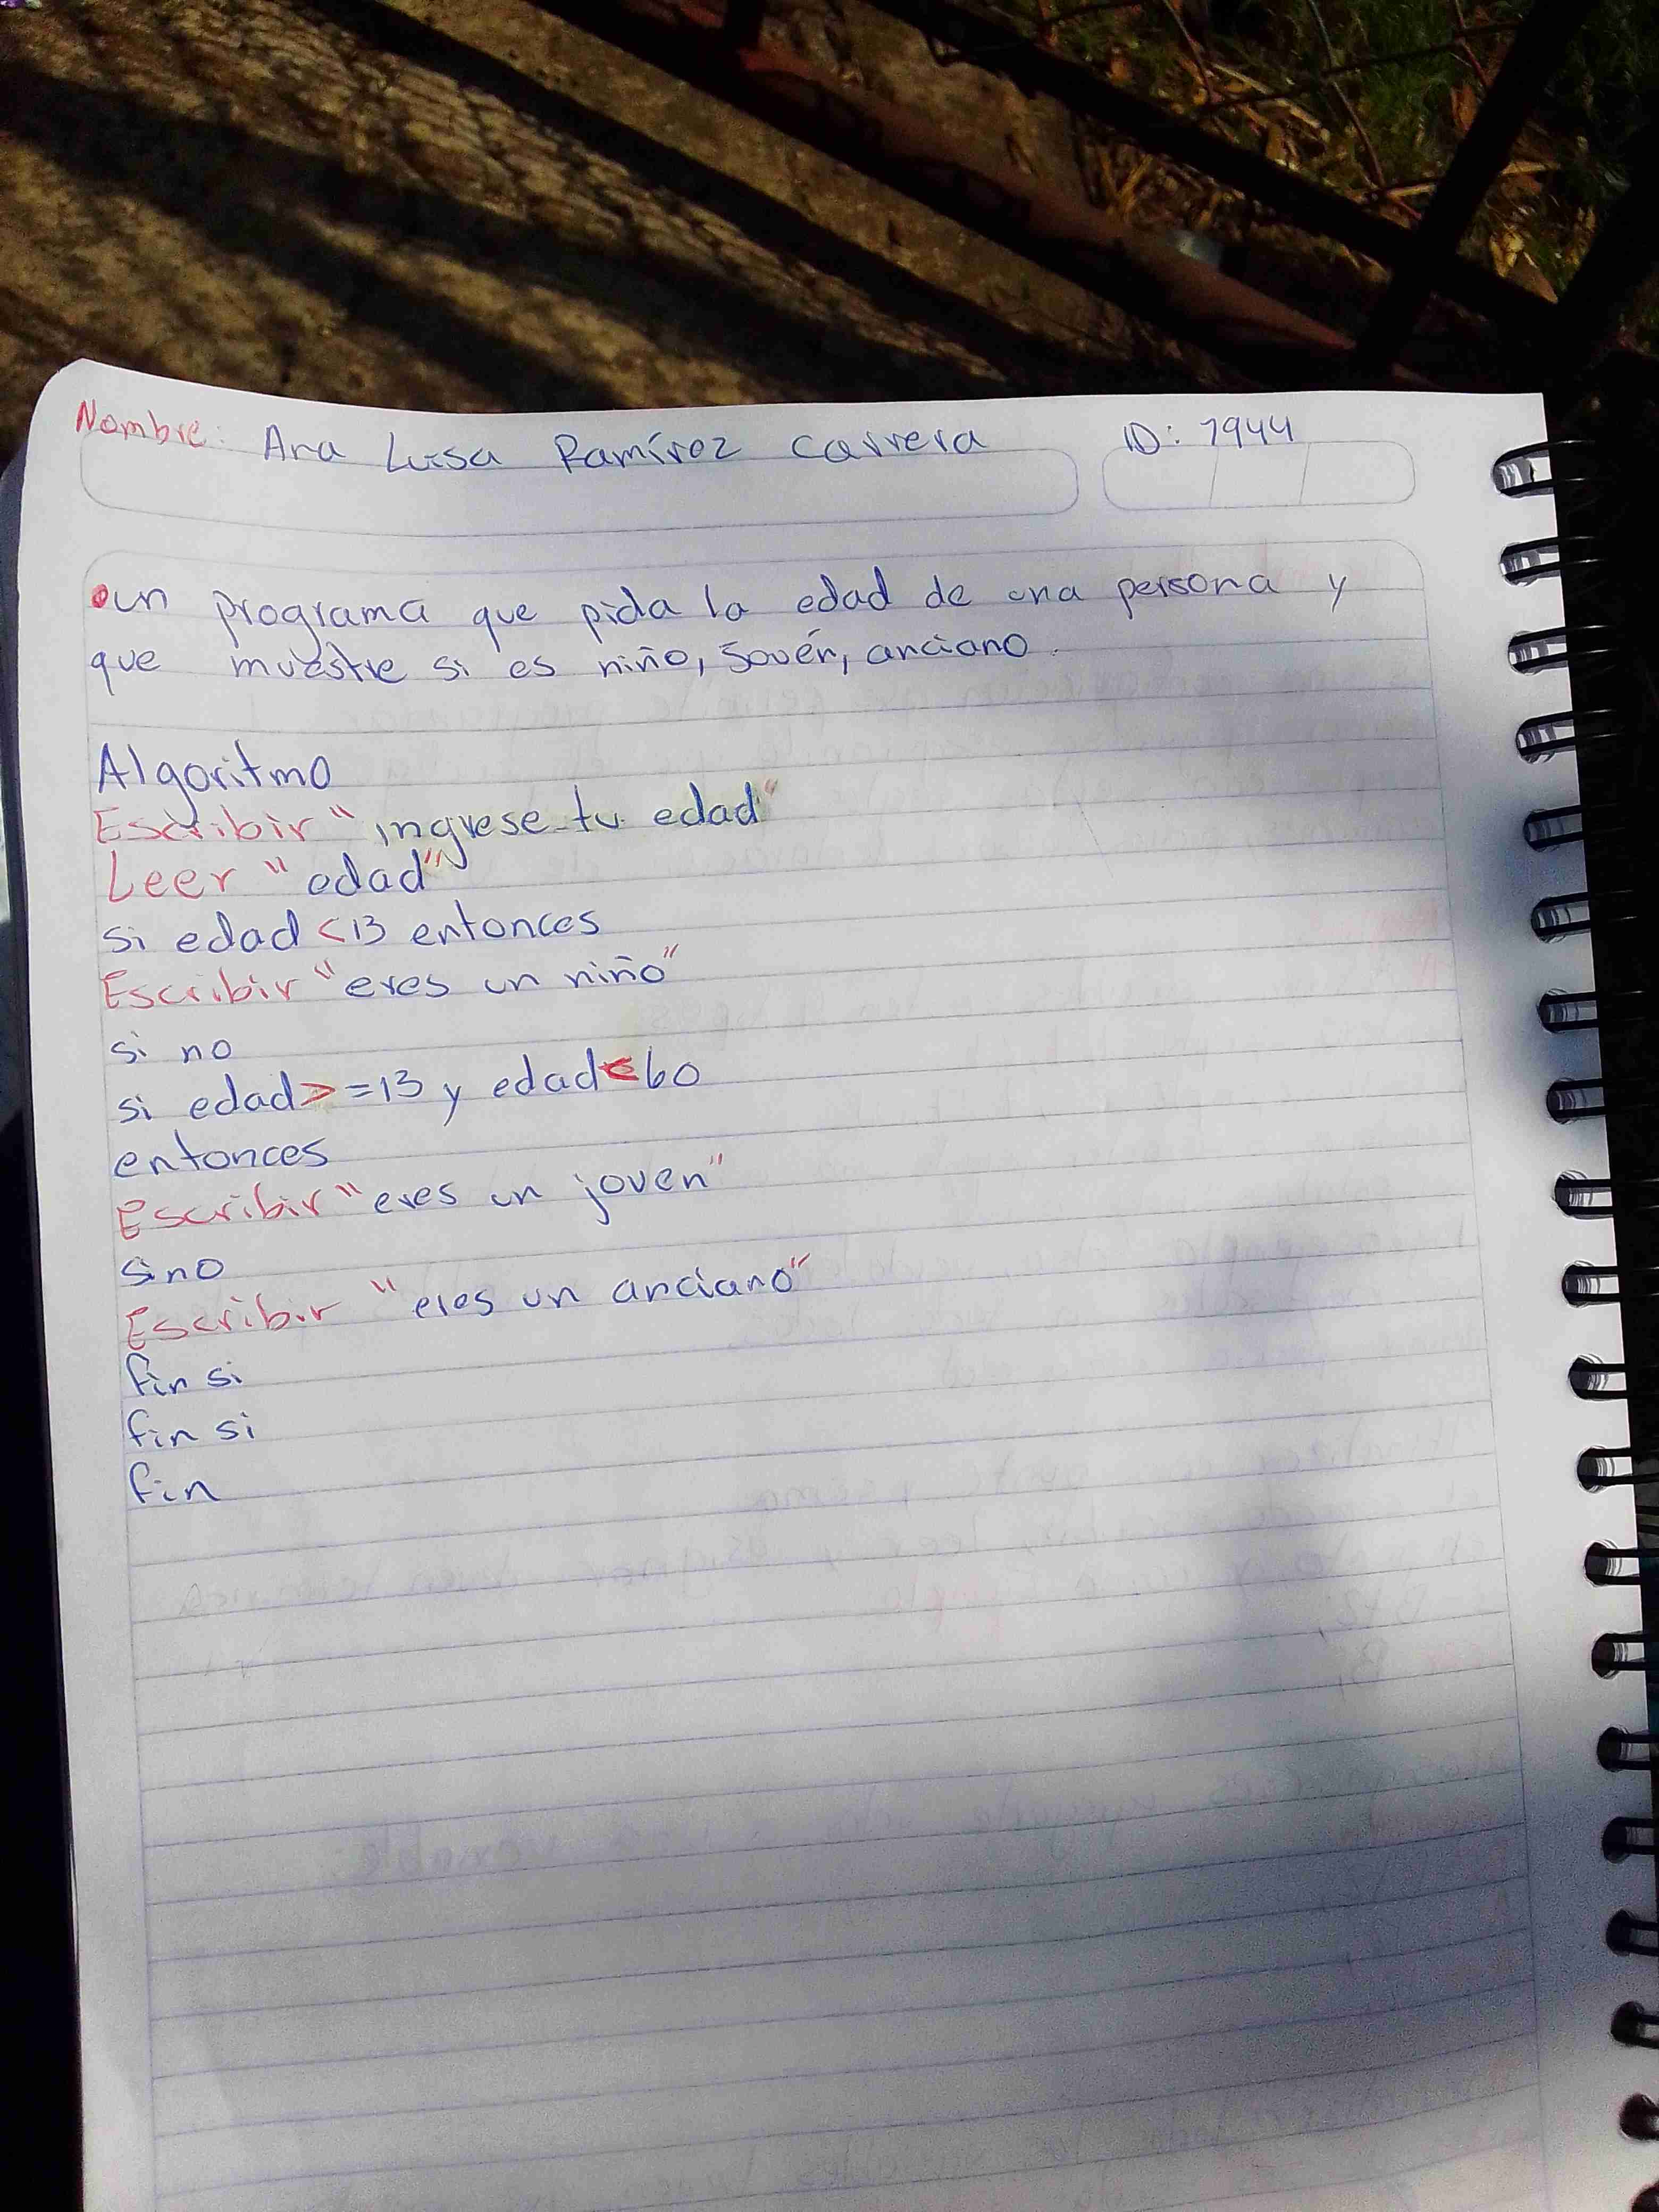 Nombre: Ana Luisa Ramírez Carrera ID: 1944
un programa que pida la edad de una persona y
que muestre si es niño, Joven, anciano.
Algoritmo
Escribir "ingrese tu edad"
Leer "edad"
si edad <13 entonces
Escribir "eres un niño"
si no
si edad>=13 y edad<60
entonces
Escribir "eres un joven"
sino
Escribir "eres un anciano"
fin si
fin si
fin